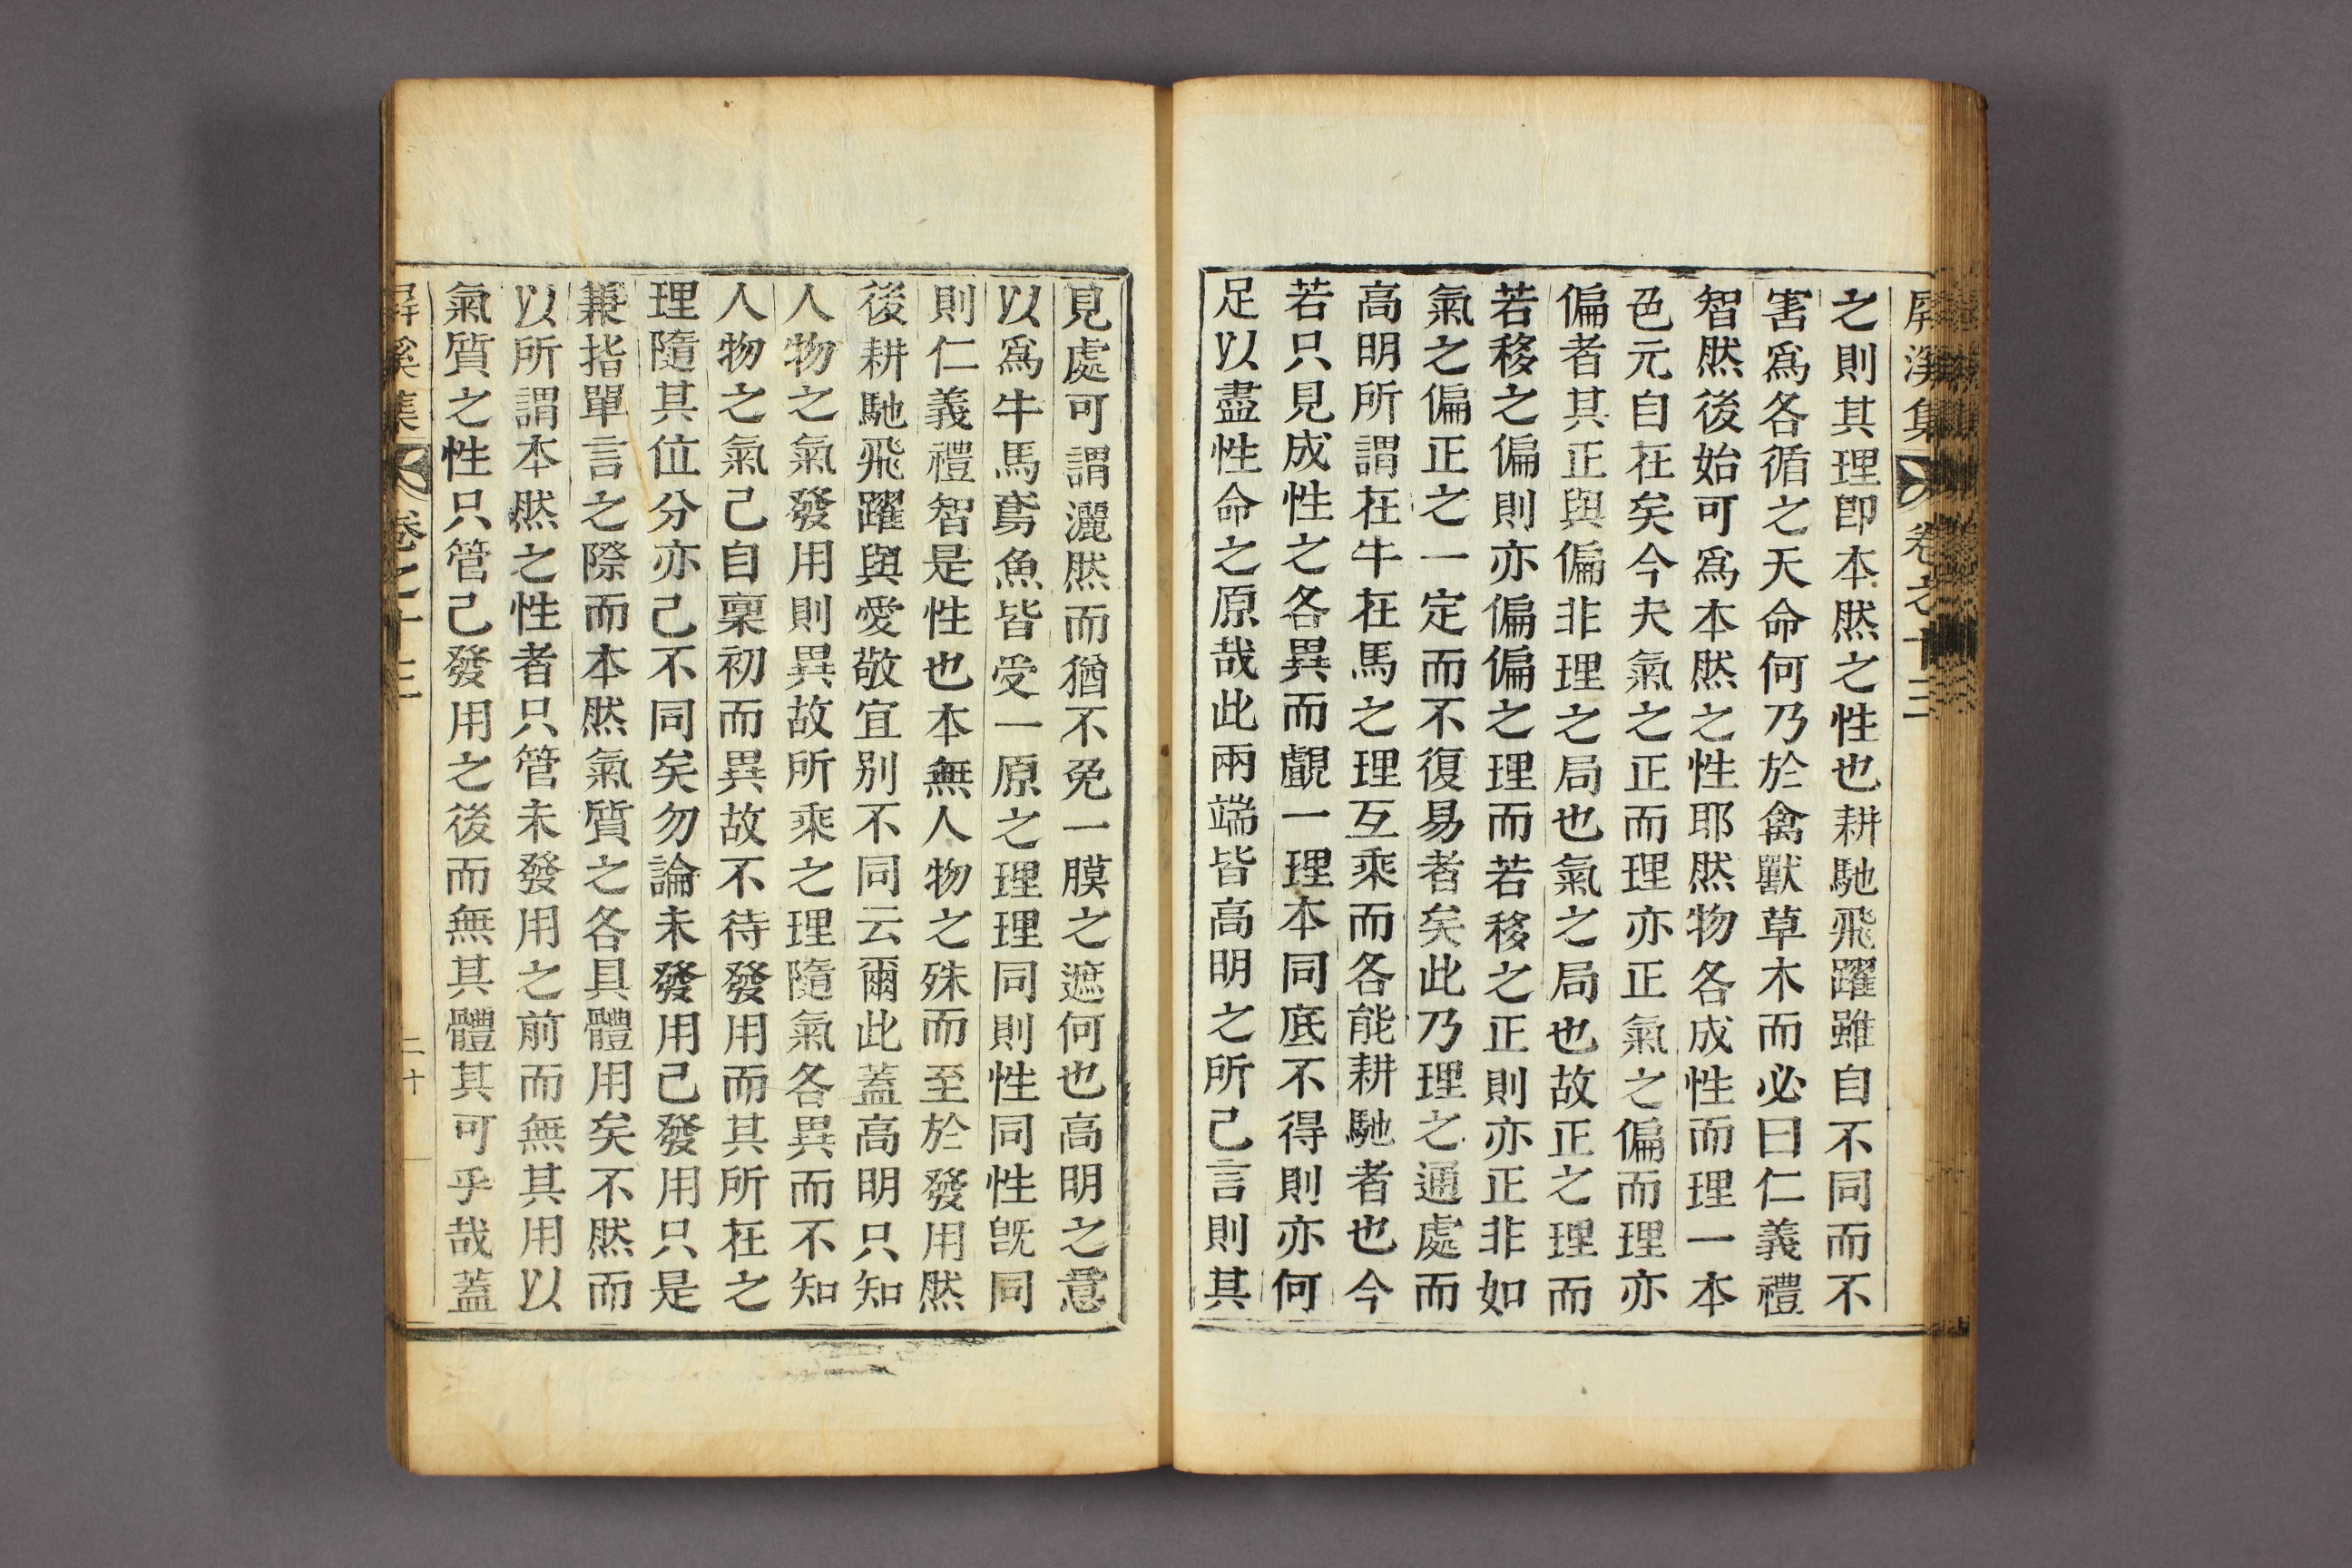 屛溪集 卷之十三
之則其理卽本然之性也耕馳飛躍雖自不同而不
害爲各循之天命何乃於禽獸草木而必曰仁義禮
智然後始可爲本然之性耶然物各成性而理一本
色元自在矣今夫氣之正而理亦正氣之偏而理亦
偏者其正與偏非理之局也氣之局也故正之理而
若移之偏則亦偏偏之理而若移之正則亦正非如
氣之偏正之一定而不復易者矣此乃理之通處而
高明所謂在牛在馬之理互乘而各能耕馳者也今
若只見成性之各異而覰一理本同底不得則亦何
足以盡性命之原哉此兩端皆高明之所已言則其
見處可謂灑然而猶不免一膜之遮何也高明之意
以爲牛馬鳶魚皆受一原之理理同則性同性旣同
則仁義禮智是性也本無人物之殊而至於發用然
後耕馳飛躍與愛敬宜別不同云爾此蓋高明只知
人物之氣發用則異故所乘之理隨氣各異而不知
人物之氣已自稟初而異故不待發用而其所在之
理隨其位分亦已不同矣勿論未發用已發用只是
兼指單言之際而本然氣質之各具體用矣不然而
以所謂本然之性者只管未發用之前而無其用以
氣質之性只管已發用之後而無其體其可乎哉蓋
屛溪集 卷之十三 二十